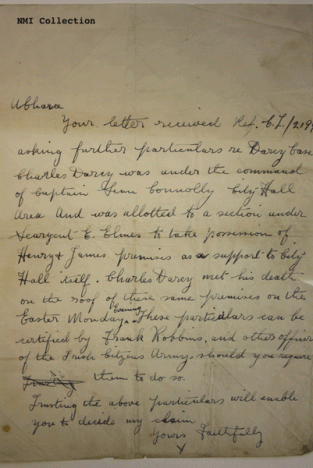 NMI Collection
A Chara
Your letter received Ref. C.F./219
asking further particulars re Darcy Case
Charles Darcy was under the command
of Captain Sean Connolly City Hall
Area and was allotted to a section under
Seargent E. Elmes to take possession of
Henry & James premises as a support to City
Hall itself. Charles Darcy met his death
on the roof of these same premises on the
Evening
Easter Monday. These particulars can be
certified by Frank Robbins, and other officers
of the Irish Citizens Army, should you require
Trusting them to do so.
Trusting the above particulars will enable
you to decide my claim
Yours Faithfully